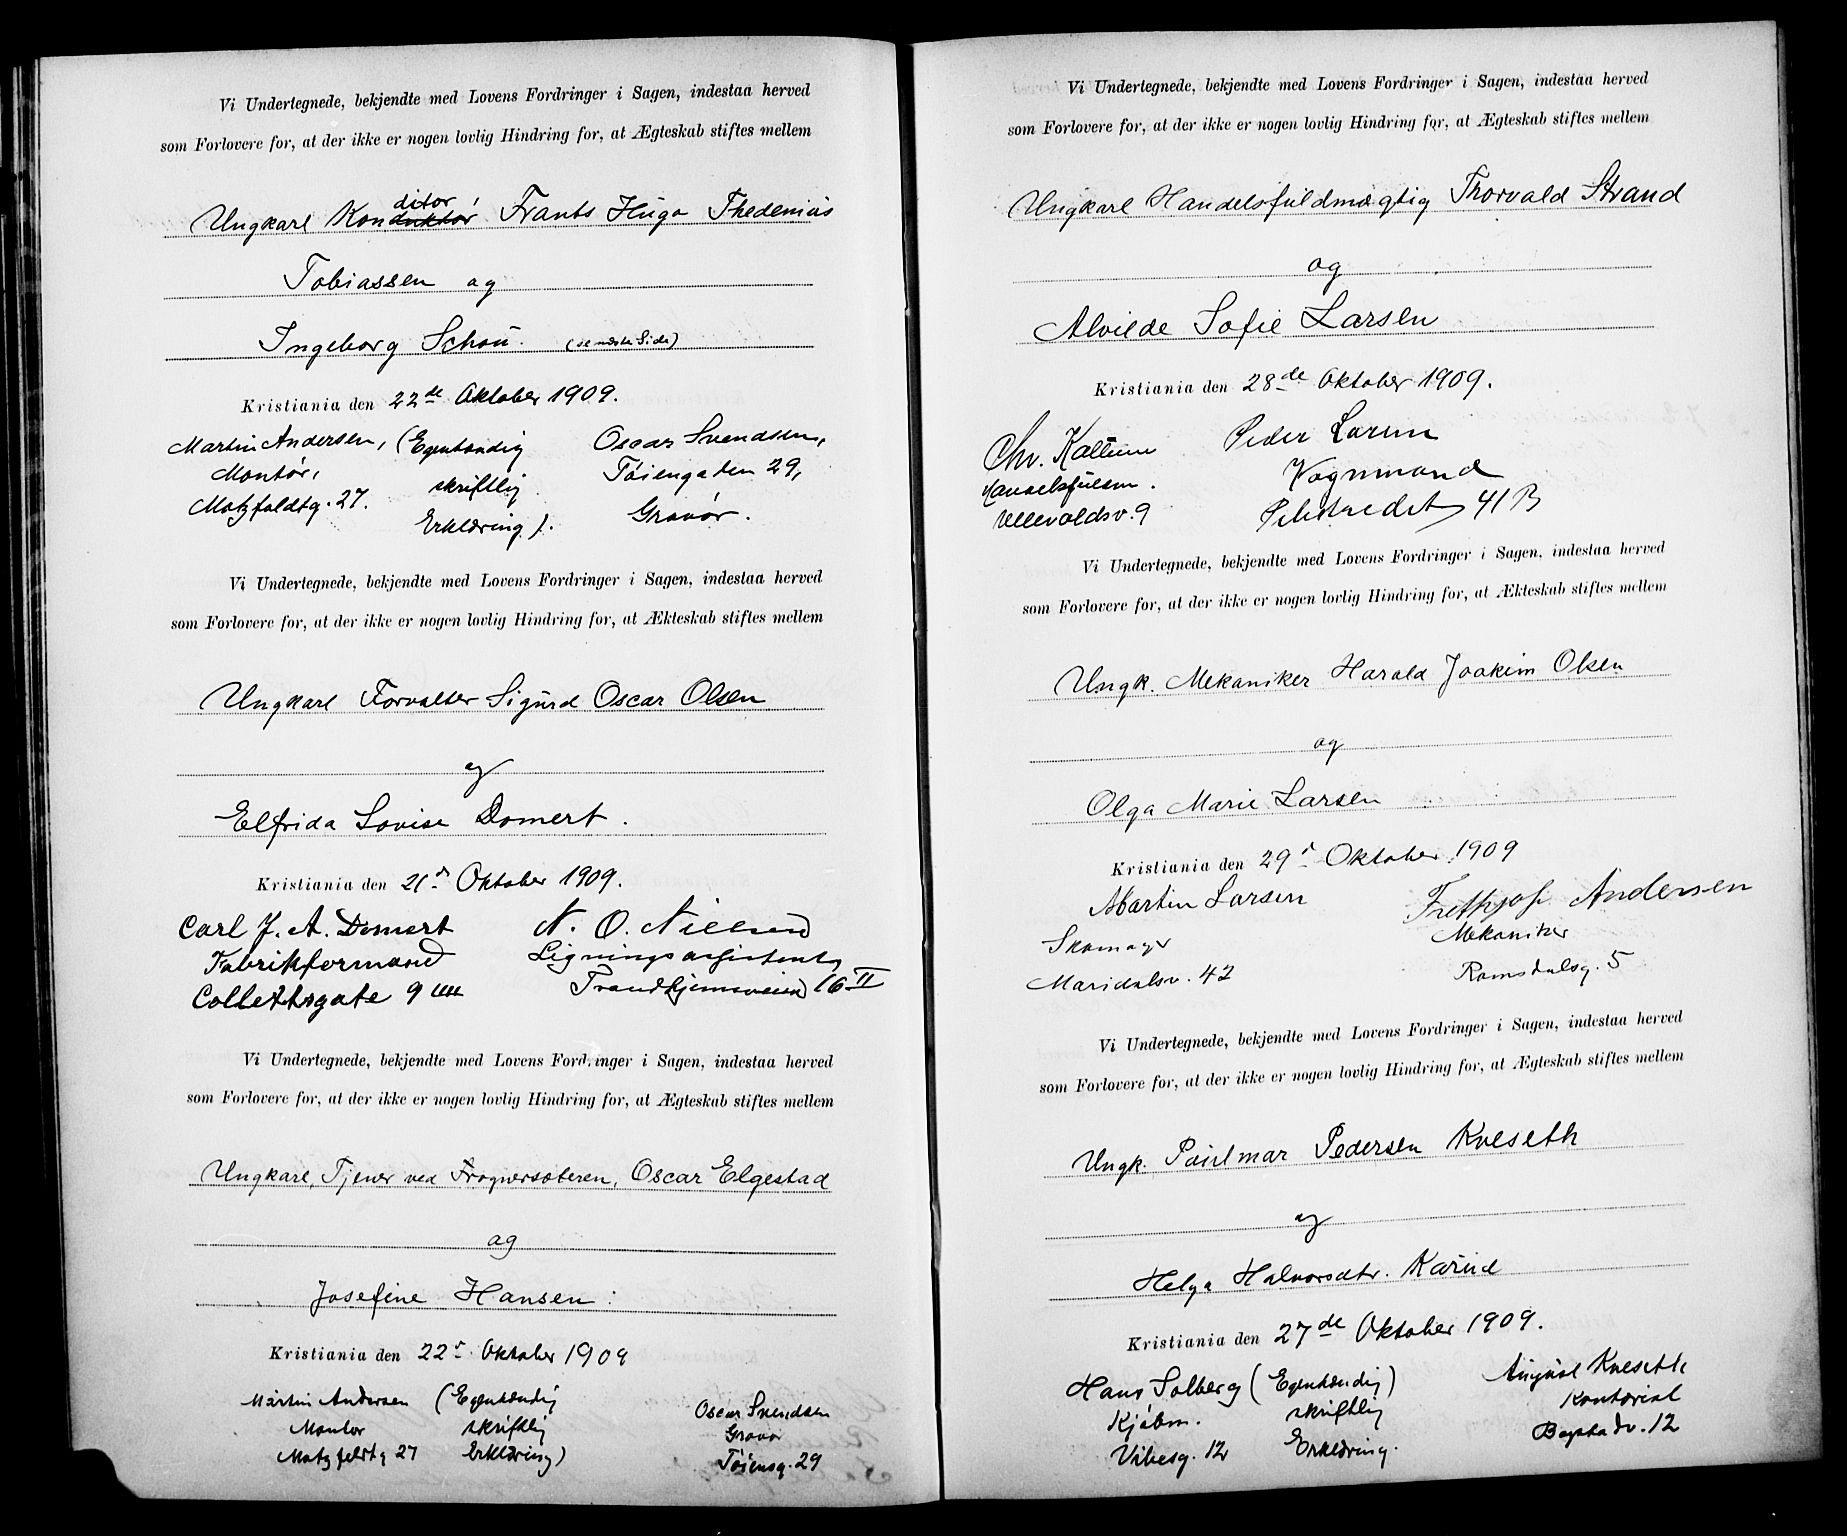 Vi Undertegnede, bekjendte med Lovens Fordringer i Sagen, indestaa herved
som Forlovere for, at der ikke er nogen lovlig Hindring for, at Ægteskab stiftes mellem
ditor,
Ungkarl Konduktør Frants Hugo Thedenius
Tobiassen og
Ingeborg Schou. (se næste Side)
Kristiania den 22de Oktober 1909.
Martin Andersen, (Egenhændig Oscar Svendsen,
Montør, skriftlig Tøiengaden 29,
Motzfeldtg. 27. Erklæring). Gravør.
Vi Undertegnede, bekjendte med Lovens Fordringer i Sagen, indestaa herved
som Forlovere for, at der ikke er nogen lovlig Hindring for, at Ækteskab stiftes mellem
Ungkarl Forvalter Sigurd Oscar Olsen
og
Elfrida Lovise Domert.
Kristiania den 21d Oktober 1909.
Carl J. A. Domert N. O. Nielsen
Fabrikformand Ligningsassistent
Collettsgate 9 Trondhjemsveien 16 II
Vi Undertegnede, bekjendte med Lovens Fordringer i Sagen, indestaa herved
som Forlovere for, at der ikke er nogen lovlig Hindring for, at Ægteskab stiftes mellem
Ungkarl, Tjener ved Frognersæteren, Oscar Elgestad
og
Josefine Hansen.
Kristiania den 22d Oktober 1909
Martin Andersen (Egenhændig Oscar Svendsen
Montør skriftlig Gravør
Motzfeldtg 27 Erklæring) Tøiensg. 29
Vi Undertegnede, bekjendte med Lovens Fordringer i Sagen, indestaa herved
som Forlovere for, at der ikke er nogen lovlig Hindring for, at Ægteskab stiftes mellem
Ungkarl Handelsfuldmægtig Thorvald Strand
og
Alvilde Sofie Larsen
Kristiania den 28de Oktober 1909.
Chr. Peder Larsen
Vognmand
Ullevoldsv. 9 Pilestrædet 41 B
Vi Undertegnede, bekjendte med Lovens Fordringer i Sagen, indestaa herved
som Forlovere for, at der ikke er nogen lovlig Hindring for, at Ækteskab stiftes mellem
Ungk. Mekaniker Harald Joakim Olsen
og
Olga Marie Larsen
Kristiania den 29d Oktober 1909
Martin Larsen Frethjof Andersen
Skomager Mekaniker
Maridalsv. 42 Romsdalsg. 5
Vi Undertegnede, bekjendte med Lovens Fordringer i Sagen, indestaa herved
som Forlovere for, at der ikke er nogen lovlig Hindring for, at Ægteskab stiftes mellem
Ungk. Paulmar Pedersen Kveseth
og
Helga Halvorsdtr. Karud
Kristiania den 27de Oktober 1909.
Hans Solberg (Egenhændig) August Kveseth
Kjøbm. skriftlig Kontorist
Vibesg. 12 Erklæring. Bogstadv. 12